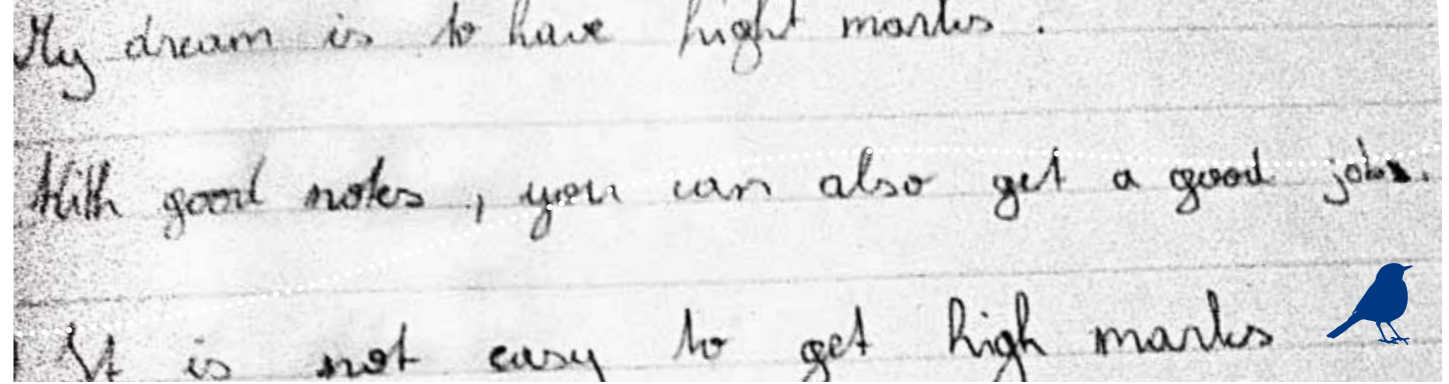 My dream is to have hight marks .
With good notes , you can also get a good job.
It is not easy to get high marks